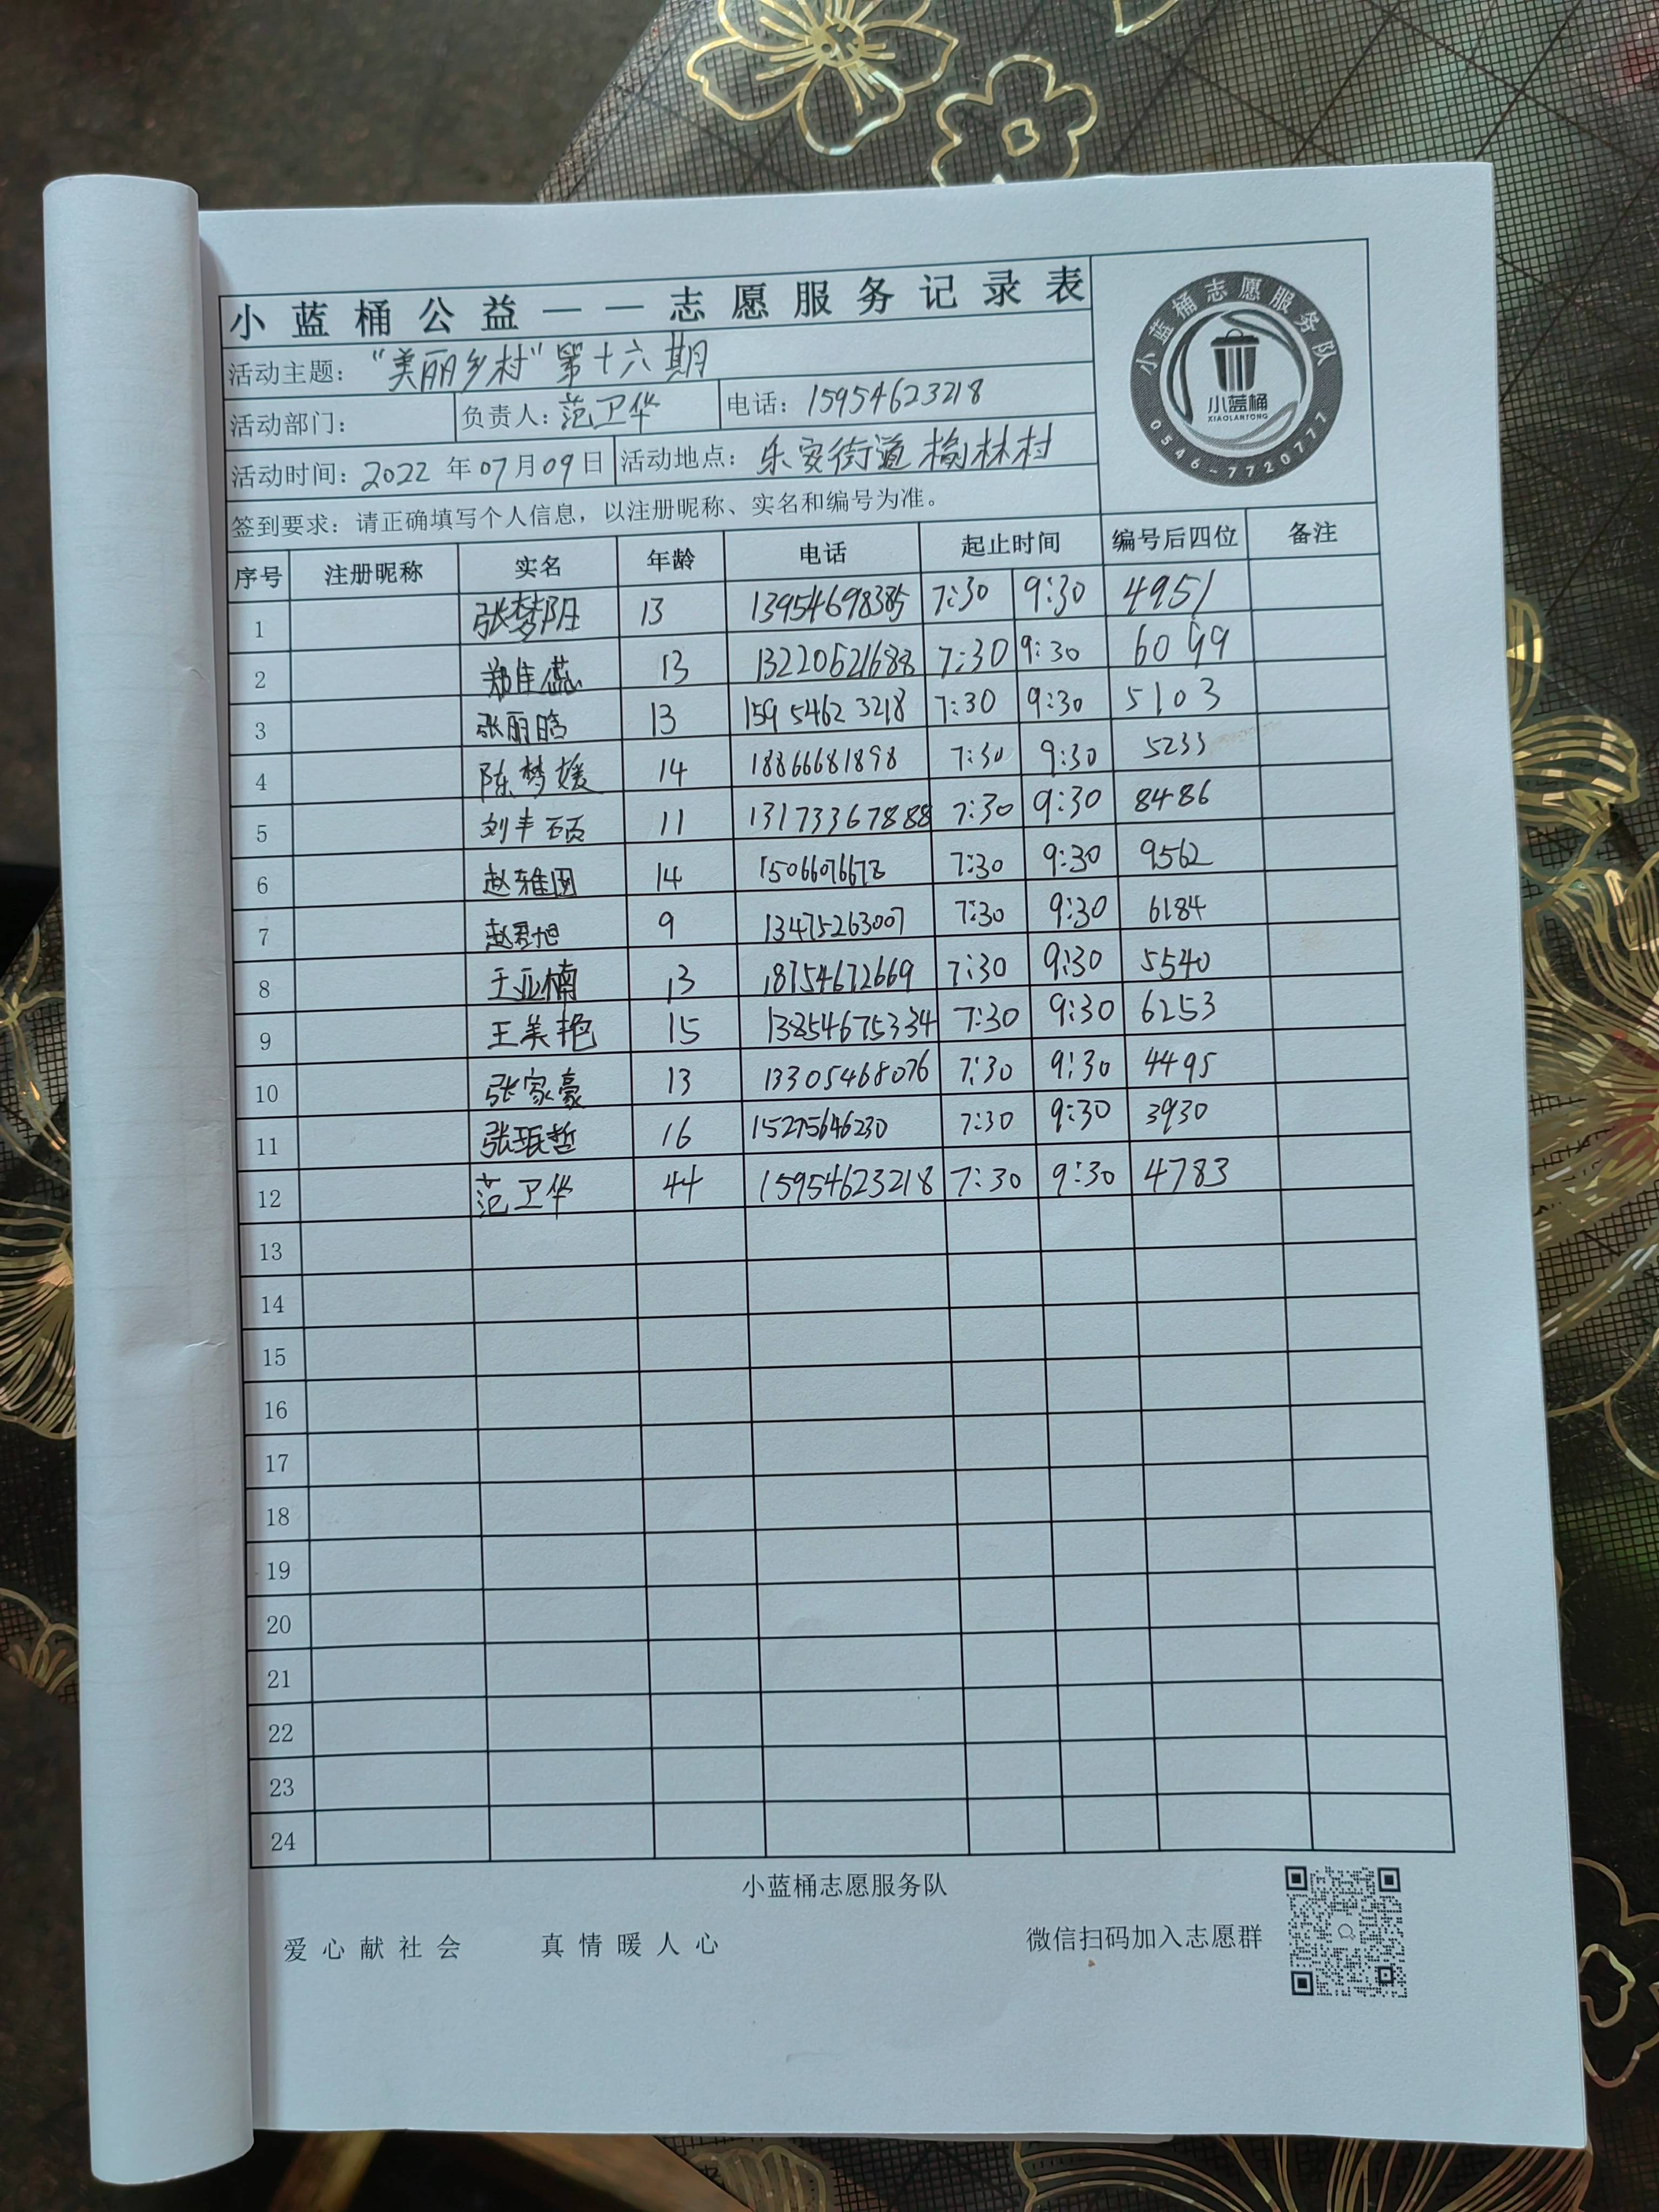 小蓝桶公益——志愿服务记录表
活动主题：“美丽乡村”第十六期
活动部门： 负责人：范卫华 电话：15954623218
活动时间：2022年07月09日 活动地点：乐安街道榆林村
签到要求：请正确填写个人信息，以注册昵称、实名和编号为准。
小蓝桶志愿服务队
小蓝桶
XIAOLANTONG
0546-7720777
序号 注册昵称 实名 年龄 电话 起止时间 编号后四位 备注
1 张梦阳 13 13954698385 7:30 9:30 4951
2 郑佳蕊 13 13220621688 7:30 9:30 6099
3 张丽晗 13 15954623218 7:30 9:30 5103
4 陈梦媛 14 18866681898 7:30 9:30 5233
5 刘丰硕 11 13173367888 7:30 9:30 8486
6 赵雅囡 14 15066076678 7:30 9:30 9562
7 赵君旭 9 13475263007 7:30 9:30 6184
8 王亚楠 13 18754672669 7:30 9:30 5540
9 王美艳 15 13854675334 7:30 9:30 6253
10 张家豪 13 13305468076 7:30 9:30 4495
11 张珉哲 16 15275646230 7:30 9:30 3930
12 范卫华 44 15954623218 7:30 9:30 4783
13
14
15
16
17
18
19
20
21
22
23
24
小蓝桶志愿服务队
爱心献社会 真情暖人心 微信扫码加入志愿群